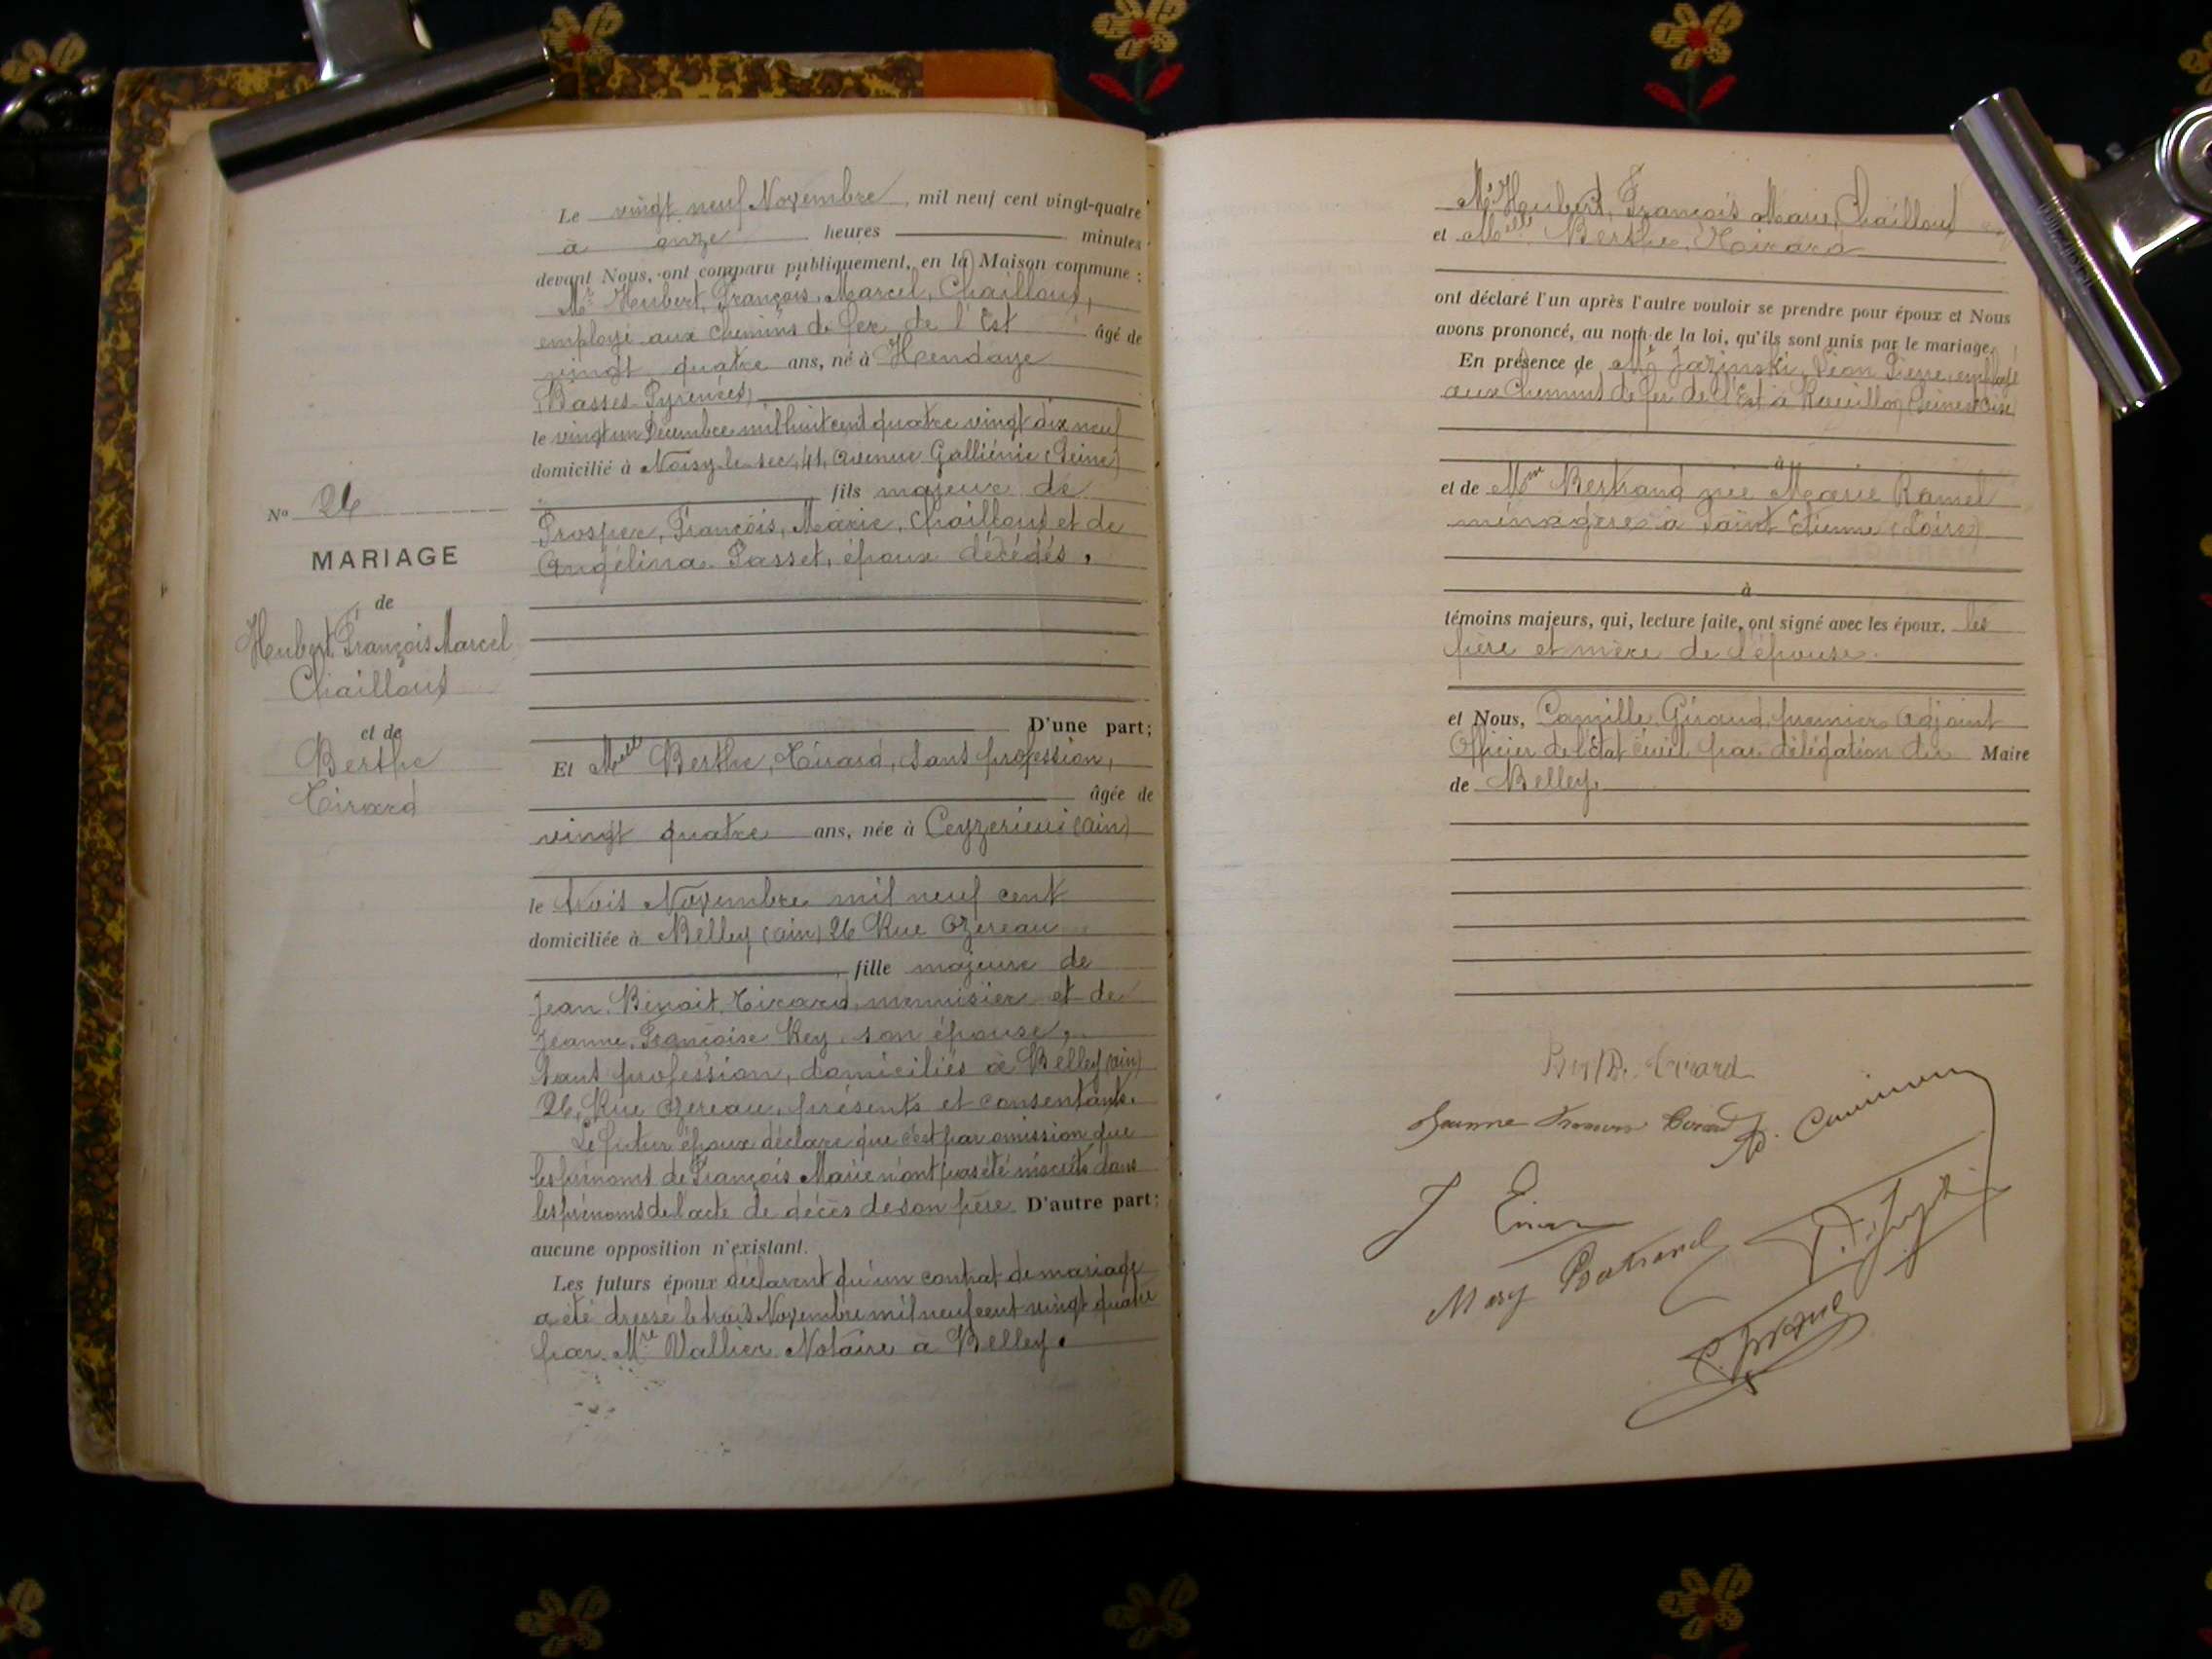 Le vingt neuf Novembre, mil neuf cent vingt-quatre
à onze heures minutes
devant Nous, ont comparu publiquement, en la Maison commune :
Mr Hubert, François, Marcel, Chailloux,
employé aux chemins de fer de l'Est âgé de
vingt quatre ans, né à Hendaye
(Basses Pyrénées)
le vingt un Décembre mil huit cent quatre vingt dix neuf
domicilié à Noisy-le-sec, 41, avenue Galliénie (Seine)
fils majeur de
Prosper, François, Marie, Chailloux et de
Angélina Passet, époux décédés,
D'une part;
Et Melle Berthe, Tirard, sans profession,
âgée de
vingt quatre ans, née à Ceyzerieu (ain)
le trois Novembre mil neuf cent
domiciliée à Belley (ain) 26 Rue Ozereau
fille majeure de
Jean, Benoit, Tirard, menuisier et de
Jeanne, Françoise Rey, son épouse,
sans profession, domiciliés à Belley (ain)
26, Rue Ozereau, présents et consentants.
Le futur époux déclare que c'est par omission que
les prénoms de François Marie n'ont pas été inscrits dans
les prénoms de l'acte de décès de son père. D'autre part;
aucune opposition n'existant.
Les futurs époux déclarent qu'un contrat de mariage
a été dressé le trois Novembre mil neuf cent vingt quatre
par Mre Vallier Notaire à Belley.
No 26
MARIAGE
de
Hubert François Marcel
Chailloux
et de
Berthe
Tirard
Mr Hubert, François Marie, Chailloux
et Melle Berthe, Tirard
ont déclaré l'un après l'autre vouloir se prendre pour époux et Nous
avons prononcé, au nom de la loi, qu'ils sont unis par le mariage.
En présence de Mr Jazinski, Léon Pierre, employé
aux Chemins de fer de l'Est à (Seine et Oise)
à
et de Mme Bertrand née Marie Ramel
ménagère à Saint Etienne (Loire)
à
témoins majeurs, qui, lecture faite, ont signé avec les époux, les
père et mère de l'épouse.
et Nous, Camille Giraud, premier adjoint
Officier de l'état civil par délégation du Maire
de Belley.
Tirard
Jeanne Tirard
J
Mary Bertrand